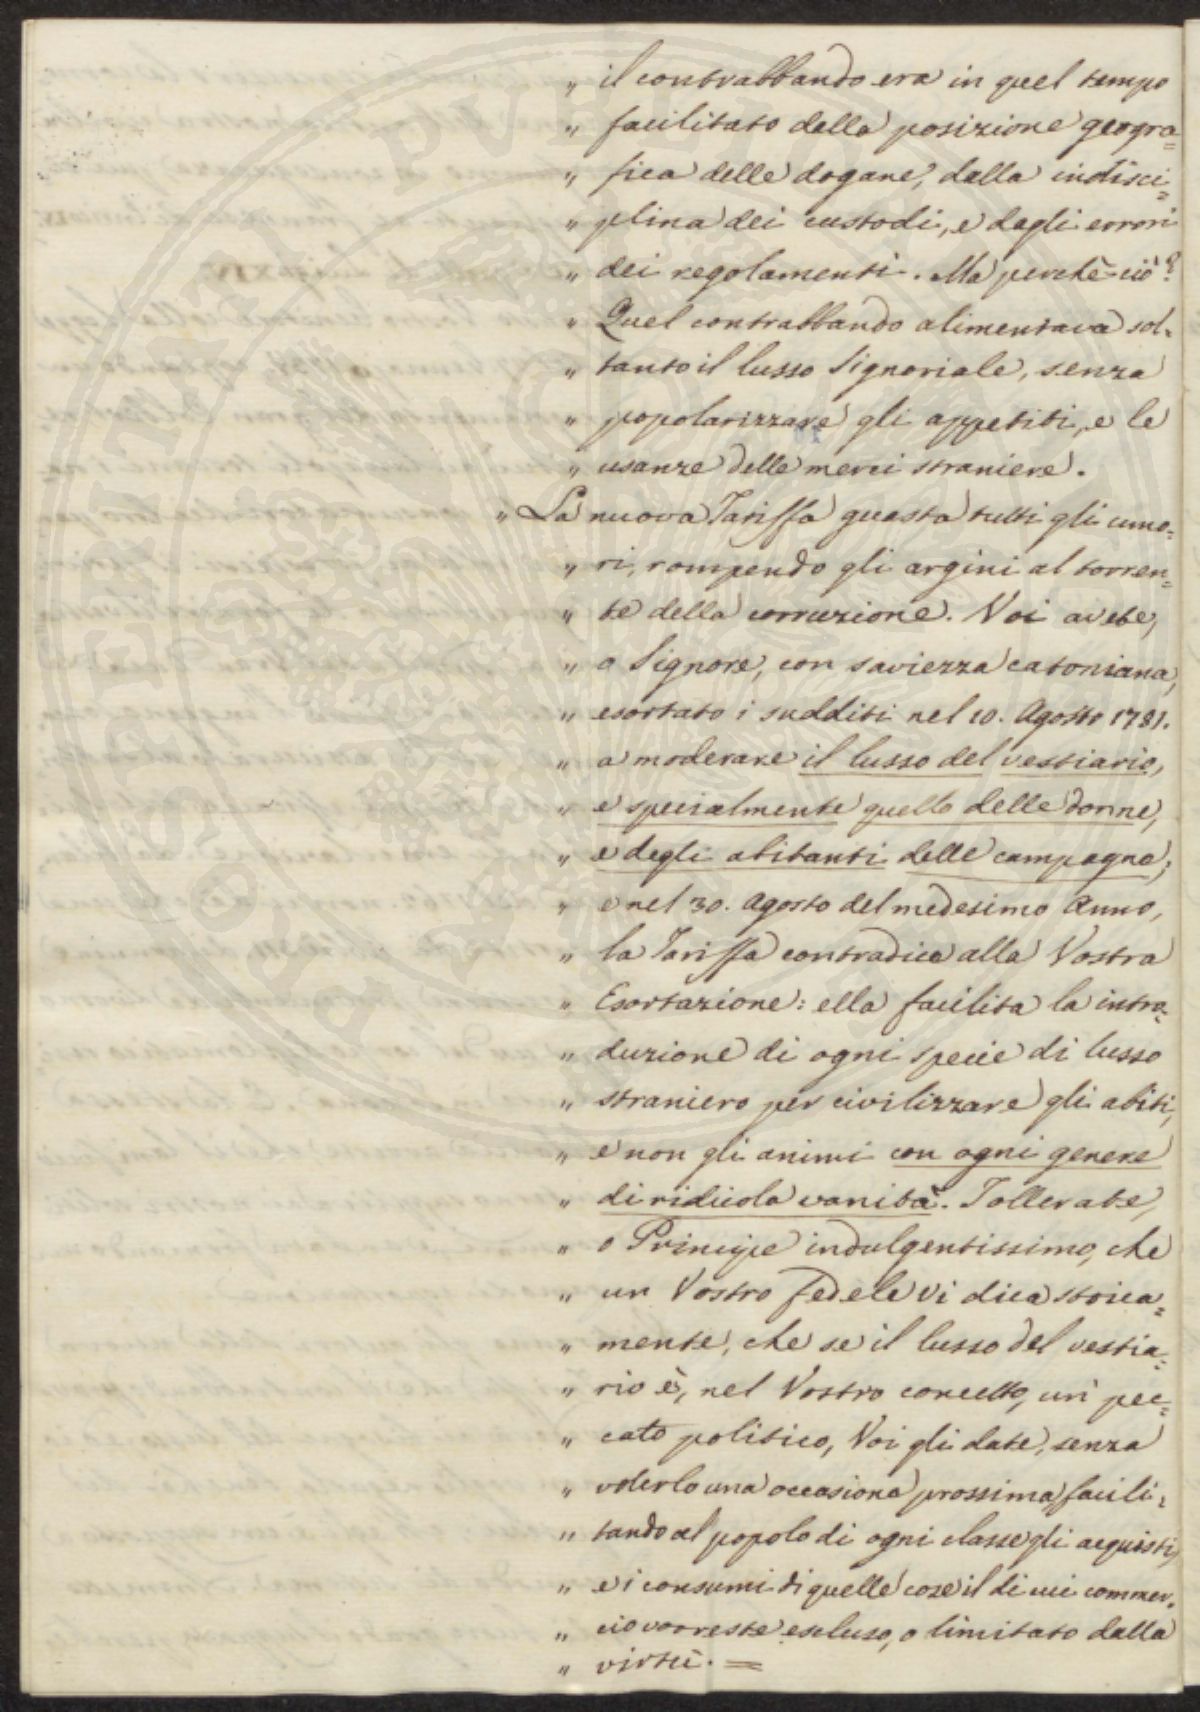 „ il contrabbando era in quel tempo
„ facilitato dalla posizione geogra=
„ fica delle dogane, dalla indisci=
„ plina dei custodi, e dagli errori
„ dei regolamenti. Ma perchè ciò?
„ Quel contrabbando alimentava sol=
„ tanto il lusso Signoriale, senza
„ popolarizzare gli appetiti, e le
„ usanze delle merci straniere.
„ La nuova Tariffa guasta tutti gli umo=
„ ri, rompendo gli argini al torren=
„ te della corruzione. Voi avete,
„ o Signore, con saviezza catoniana,
„ esortato i sudditi nel 10. Agosto 1781.
„ a moderare il lusso del vestiario,
„ e specialmente quello delle donne,
„ e degli abitanti delle campagne;
„ e nel 30. Agosto del medesimo Anno,
„ la Tariffa contradice alla Vostra
„ Esortazione: ella facilita la intro=
„ duzione di ogni specie di lusso
„ straniero per civilizzare gli abiti,
„ e non gli animi con ogni genere
„ di ridicola vanità. Tollerate,
„ o Principe indulgentissimo, che
„ un Vostro fedele vi dica stoica=
„ mente, che se il lusso del vestia=
„ rio è, nel Vostro concetto, un pec=
„ cato politico, Voi gli date, senza
„ volerlo una occasione prossima, facili=
„ tando al popolo di ogni classe gli acquisti,
„ e i consumi di quelle cose il di cui commer=
„ cio vorreste escluso, o limitato dalla
„ virtù. =